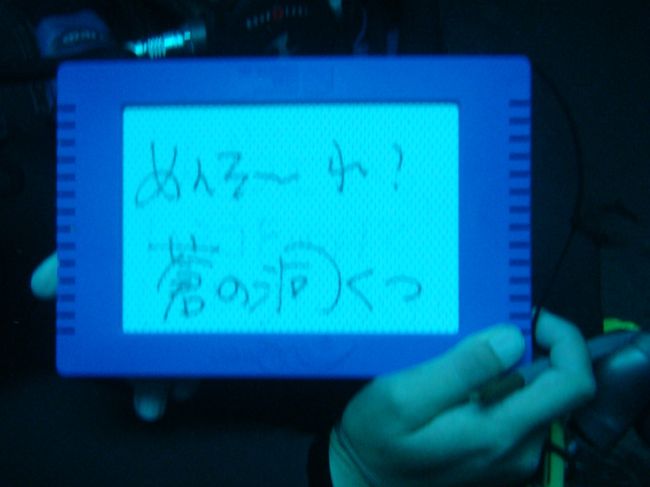 めんそ〜れ?
蒼の洞くつ